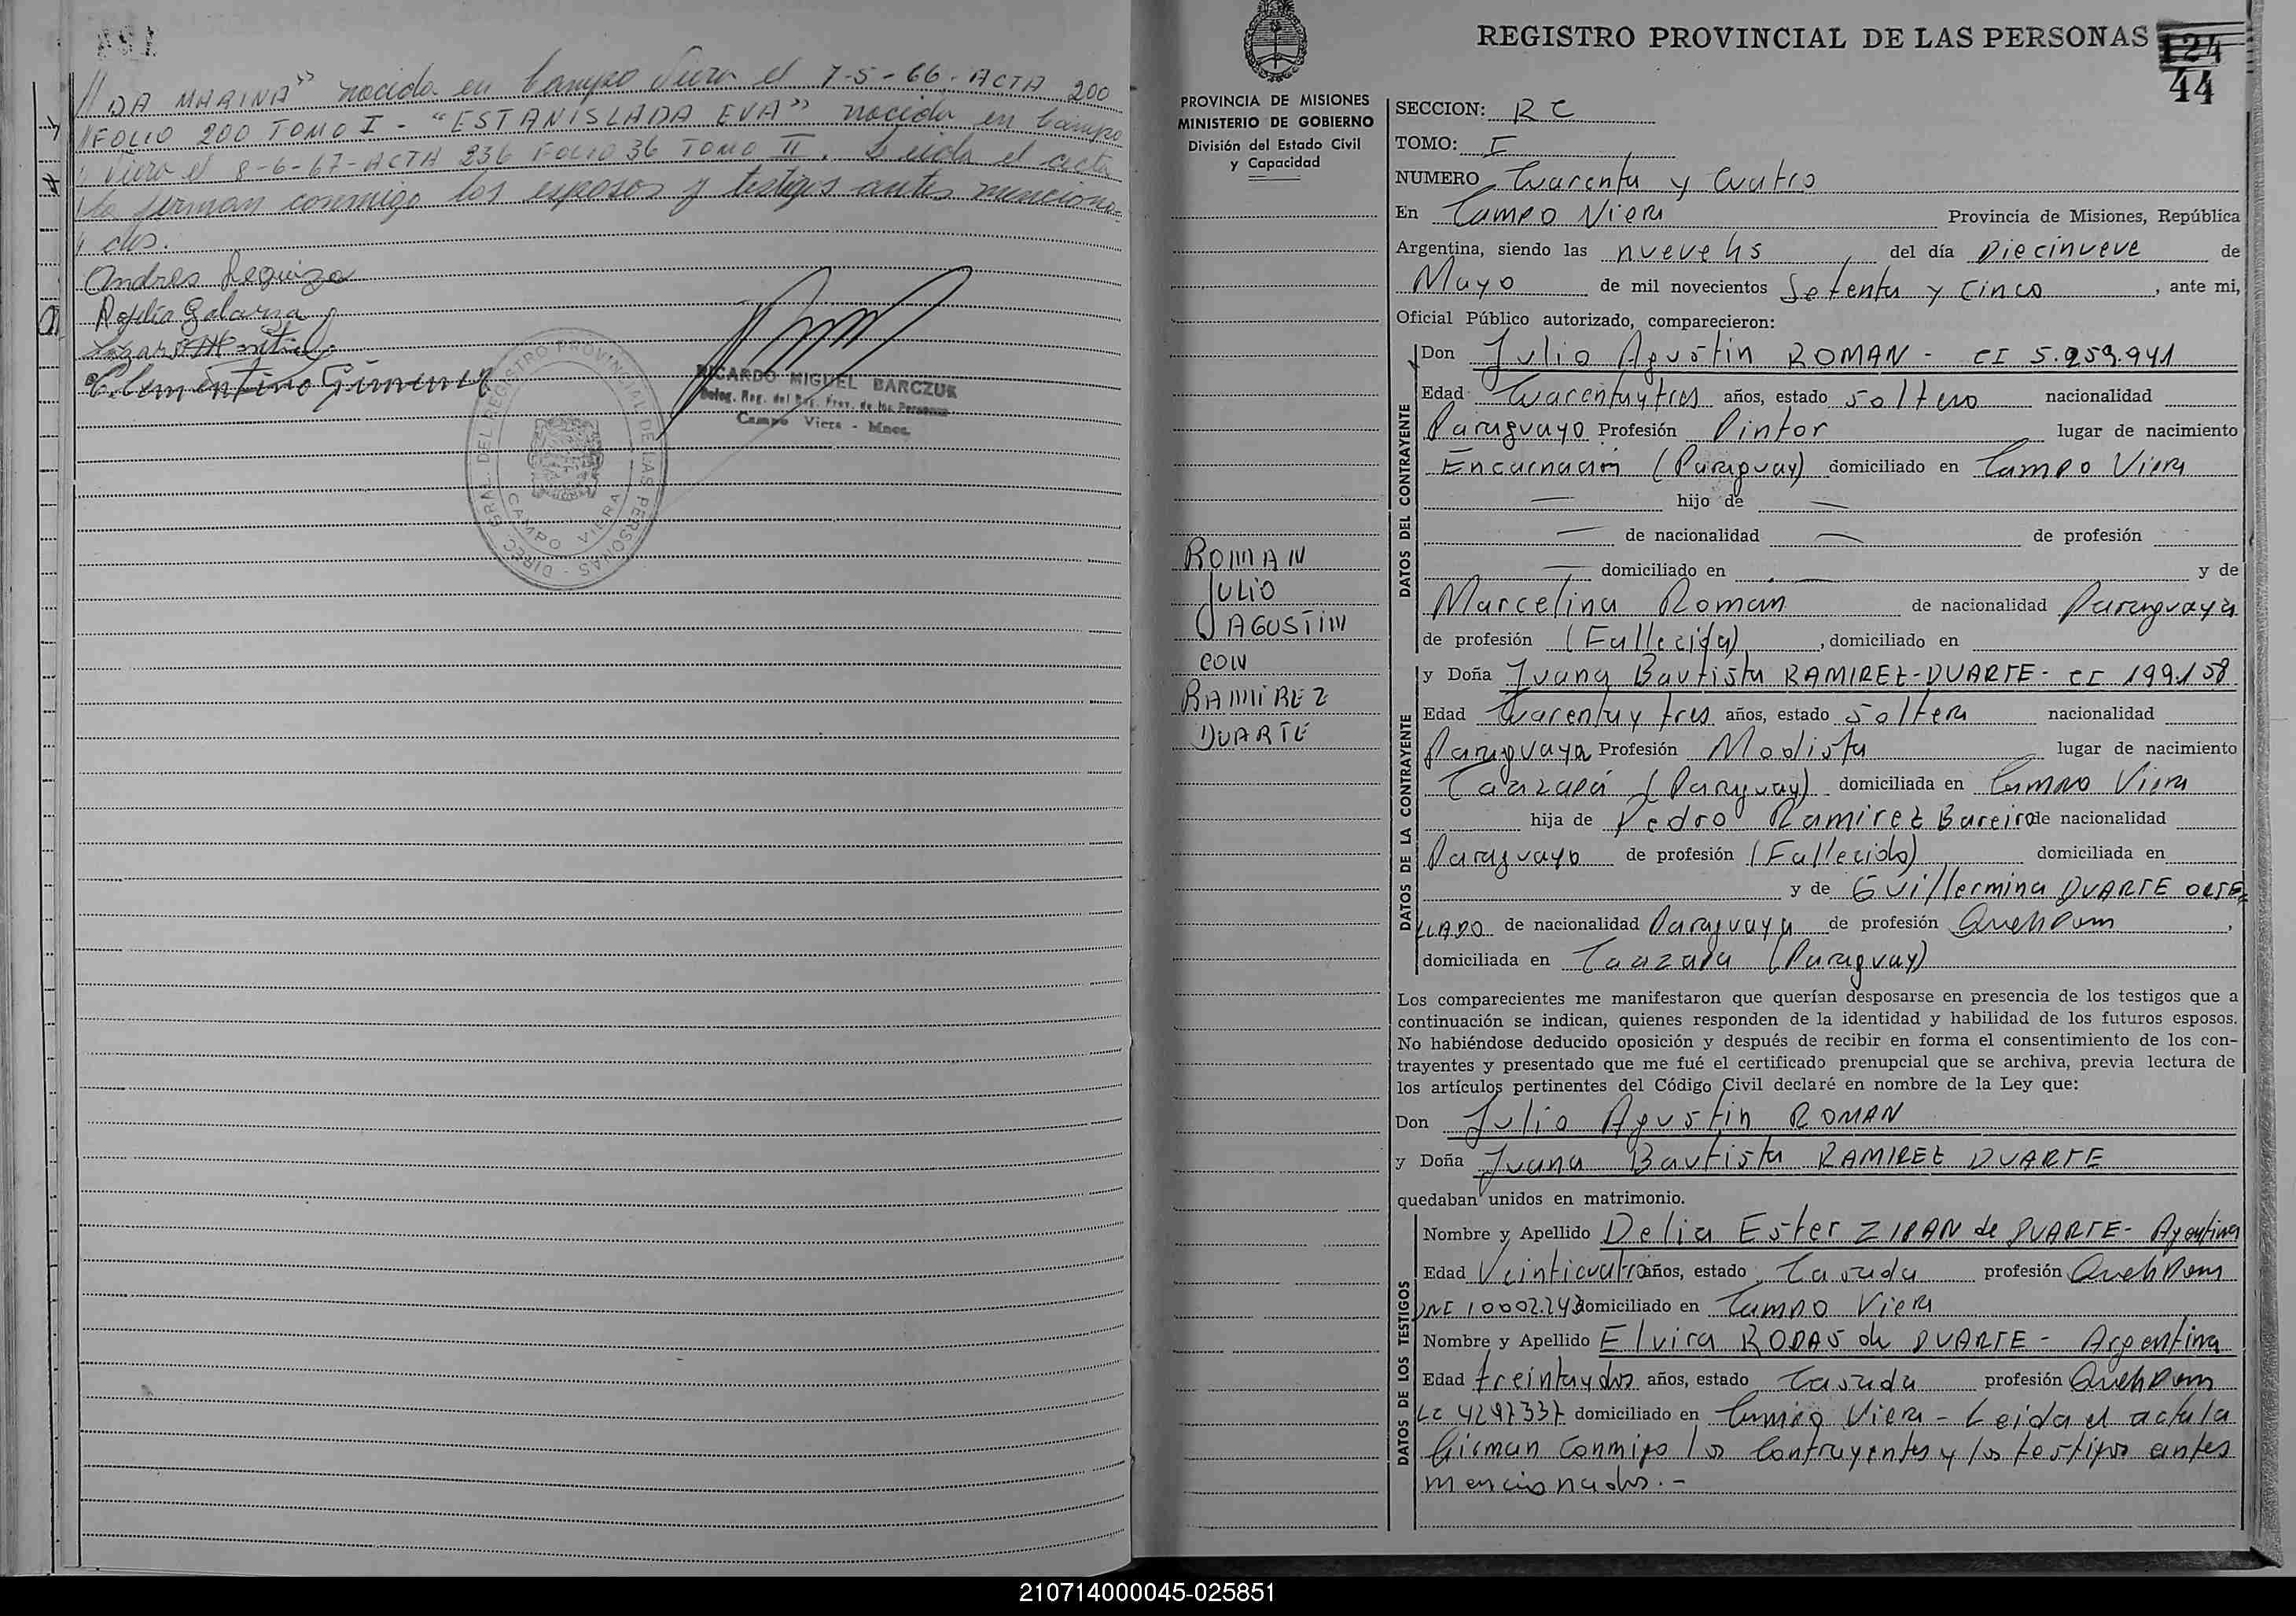 // DA MARINA" nacida en Campo Viera el 7-5-66. ACTA 200
//FOLIO 200 TOMO I - "ESTANISLADA EVA" nacida en Campo
Viera el 8-6-67- ACTA 236 FOLIO 36 TOMO II. Leida el acta
la firman conmigo los esposos y testigos antes menciona-
dos.
Andres Leguiza
Galarza
Clementino Gimenez
DIREC. GRAL. DEL REGISTRO PROVINCIAL DE LAS PERSONAS
CAMPO VIERA
RICARDO MIGUEL BARCZUK
Campo Viera - Mnes.
REGISTRO PROVINCIAL DE LAS PERSONAS
124
44
PROVINCIA DE MISIONES
MINISTERIO DE GOBIERNO
División del Estado Civil
y Capacidad
ROMAN
JULIO
AGUSTIN
CON
RAMIREZ
DUARTE
SECCION: RC
TOMO: I
NUMERO Cuarenta y Cuatro
En Campo Viera Provincia de Misiones, República
Argentina, siendo las nueve hs del día Diecinueve de
Mayo de mil novecientos Setenta y Cinco, ante mi,
Oficial Público autorizado, comparecieron:
DATOS DEL CONTRAYENTE
Don Julio Agustin ROMAN - CI 5.959.941
Edad Cuarentaytres años, estado soltero nacionalidad
Paraguayo Profesión Pintor lugar de nacimiento
Encarnación (Paraguay) domiciliado en Campo Viera
— hijo de —
— de nacionalidad — de profesión
— domiciliado en y de
Marcelina Roman de nacionalidad Paraguaya
de profesión (Fallecida), domiciliado en
DATOS DE LA CONTRAYENTE
y Doña Juana Bautista RAMIREZ-DUARTE - CI 199.158
Edad Cuarentay tres años, estado soltera nacionalidad
Paraguaya Profesión Modista lugar de nacimiento
Caazapá (Paraguay) domiciliada en Campo Viera
hija de Pedro Ramirez Bareiro de nacionalidad
Paraguayo de profesión (Fallecido) domiciliada en
y de Guillermina DUARTE ORTE=
LLADO de nacionalidad Paraguaya de profesión QuehDom,
domiciliada en Caazapa (Paraguay)
Los comparecientes me manifestaron que querían desposarse en presencia de los testigos que a
continuación se indican, quienes responden de la identidad y habilidad de los futuros esposos.
No habiéndose deducido oposición y después de recibir en forma el consentimiento de los con-
trayentes y presentado que me fué el certificado prenupcial que se archiva, previa lectura de
los artículos pertinentes del Código Civil declaré en nombre de la Ley que:
Don Julio Agustin ROMAN
y Doña Juana Bautista RAMIREZ DUARTE
quedaban unidos en matrimonio.
DATOS DE LOS TESTIGOS
Nombre y Apellido Delia Ester ZIPAN de DUARTE - Argentina
Edad Veinticuatro años, estado Casada profesión QuehDom
DNI 10002.243 domiciliado en Campo Viera
Nombre y Apellido Elvira RODAS de DUARTE - Argentina
Edad treintaydos años, estado Casada profesión QuehDom
LC 4297337 domiciliado en Campo Viera - Leida el acta la
firman conmigo los Contrayentes y los testigos antes
mencionados.-
210714000045-025851